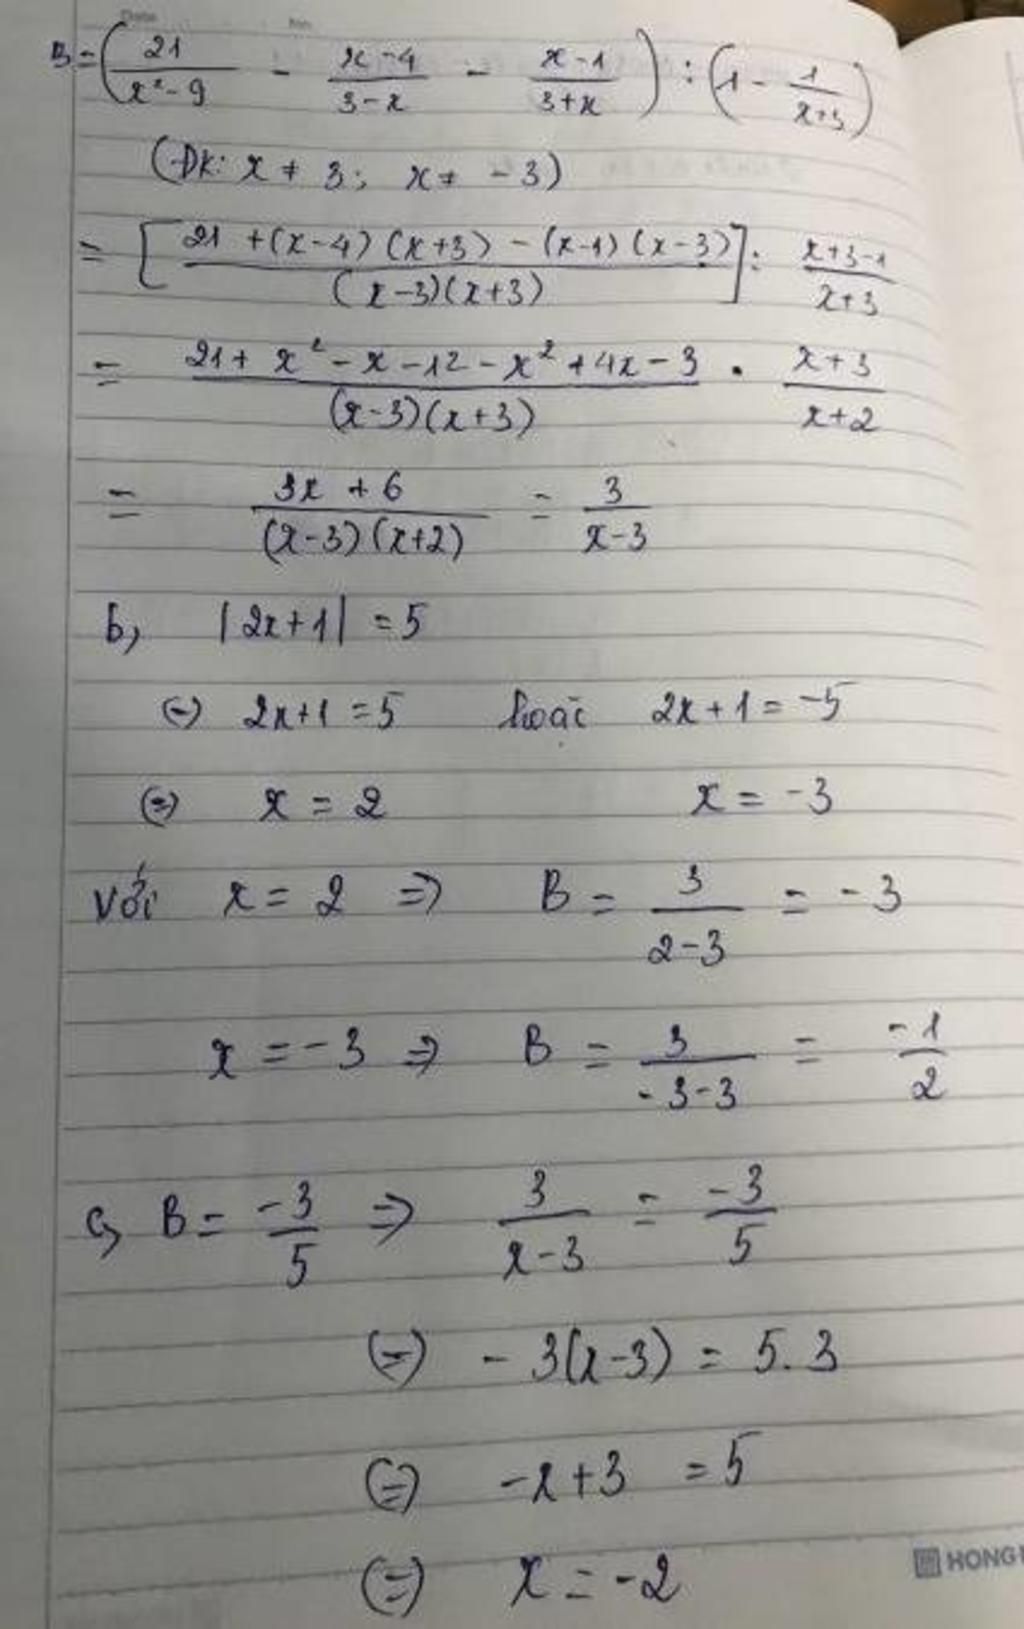 Date No.
B = (21/(x² - 9) - (x - 4)/(3 - x) - (x - 1)/(3 + x)) : (1 - 1/(x+3))
(ĐK: x ≠ 3; x ≠ -3)
= [(21 + (x - 4)(x + 3) - (x - 1)(x - 3))/((x - 3)(x + 3))] : (x + 3 - 1)/(x + 3)
= (21 + x² - x - 12 - x² + 4x - 3)/((x - 3)(x + 3)) . (x + 3)/(x + 2)
= (3x + 6)/((x - 3)(x + 2)) = 3/(x - 3)
b, |2x + 1| = 5
(=) 2x + 1 = 5 hoặc 2x + 1 = -5
(=) x = 2 x = -3
với x = 2 => B = 3/(2 - 3) = -3
x = -3 => B = 3/(-3 - 3) = -1/2
c, B = -3/5 => 3/(x - 3) = -3/5
(=) -3(x - 3) = 5.3
(=) -x + 3 = 5
(=) x = -2
HONG